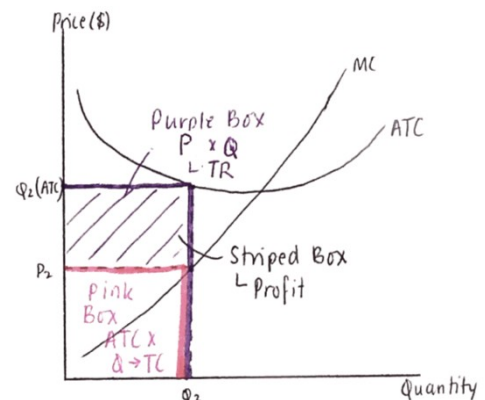 Price($)
MC
ATC
Purple Box
P x Q
↳ TR
Q₂(ATC)
Striped Box
↳ Profit
P₂
Pink
Box
ATC x
Q → TC
Q₂
Quantity